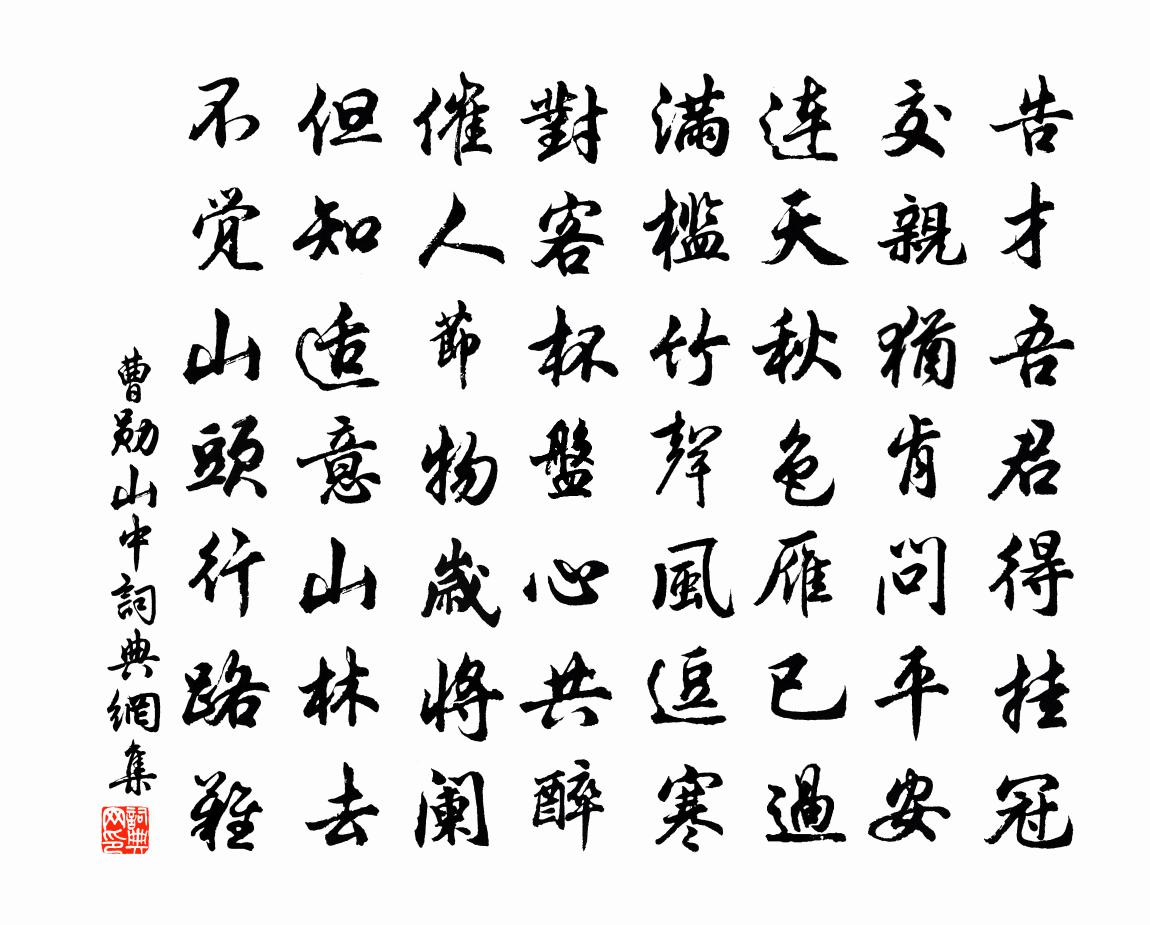 告才吾君得挂冠
交親猶肯问平安
连天秋色雁已過
滿檻竹聲風逗寒
對客杯盤心共醉
催人節物歲將阑
但知适意山林去
不觉山頭行路難
曹勋山中詞典網集
詞典网印